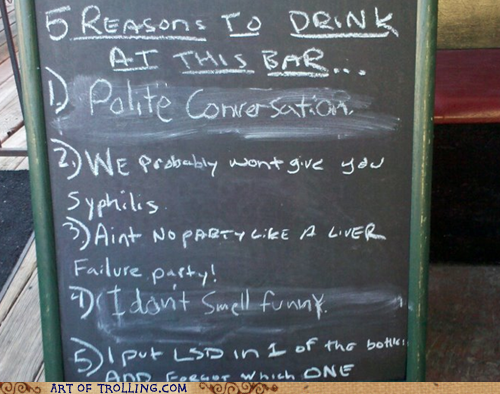 5 REASONS TO DRINK
AT THIS BAR...
1) Polite Conversation.
2.) WE Probably wont give you
Syphilis.
3.) Aint NO PARTY LIKE A LIVER
Failure party!
4) I don't smell funny.
5.) I put LSD in 1 of the bottles
AND Forgot which ONE
ART OF TROLLING.COM